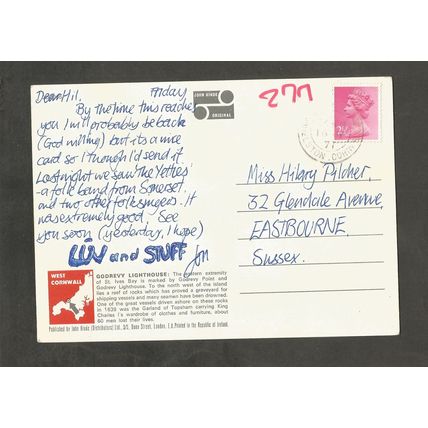 Dear Hil,
Friday
By the time this reaches
you I will probably be back
(God willing) but it's a nice
card so I though I'd send it.
Last night we saw The Yetties
- a folk band from Somerset,
and two other folksingers. It
was extremely good. See
you soon (yesterday, I hope)
LUV and STUFF
JOHN HINDE
ORIGINAL
277
2½
71
Miss Hilary Pilcher,
32 Glendale Avenue,
EASTBOURNE,
Sussex.
WEST
CORNWALL
GODREVY LIGHTHOUSE: The eastern extremity
of St. Ives Bay is marked by Godrevy Point and
Godrevy Lighthouse. To the north west of the island
lies a reef of rocks which has proved a graveyard for
shipping vessels and many seamen have been drowned.
One of the great vessels driven ashore on these rocks
in 1639 was the Garland of Topsham carrying King
Charles I's wardrobe of clothes and furniture, about
60 men lost their lives.
Published by John Hinde (Distributors) Ltd., Dean Street, London, Printed in the Republic of Ireland.